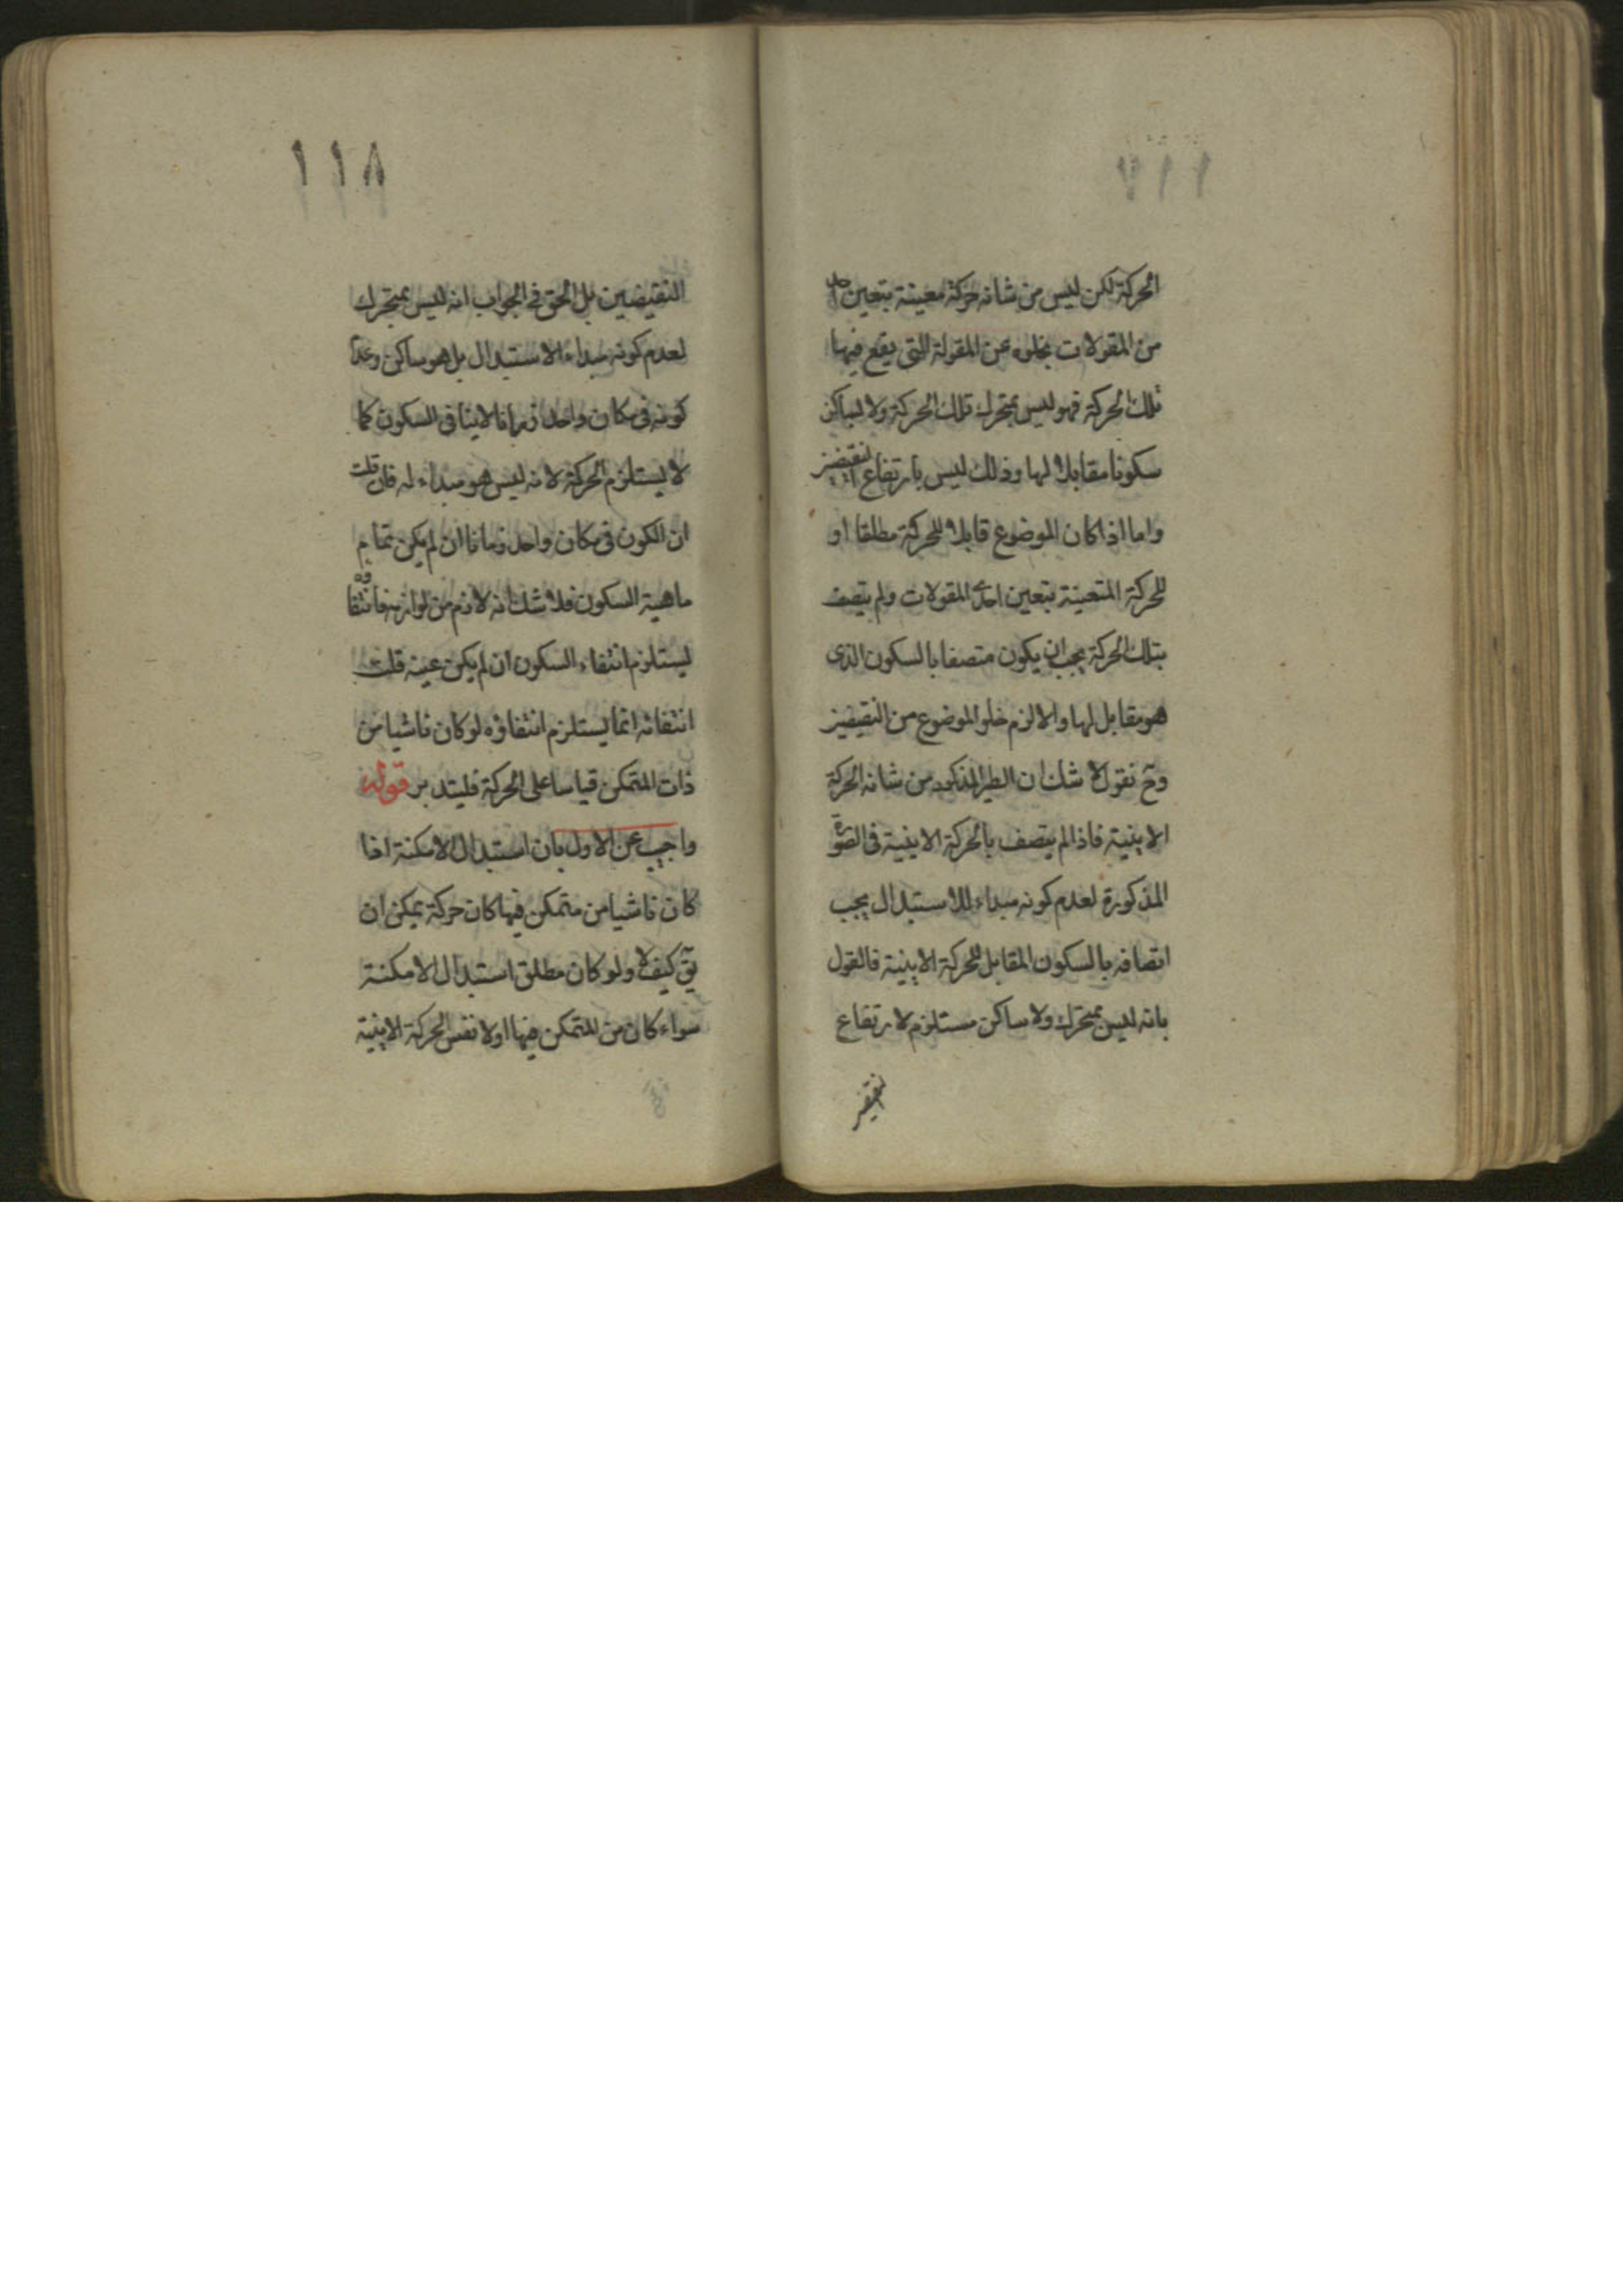 ١١٧
الحركة لكن ليس من شانه حركة معينة بتعين احد
من المقولات بخلوه عن المقولة التى يقع فيها
تلك الحركة فهو ليس بمتحرك تلك الحركة ولا لساكن
سكونا مقابلا لها وذلك ليس بارتفاع النقيضين
واما اذا كان الموضوع قابلا للحركة مطلقا او
للحركة المتعينة بتعين احدى المقولات ولم يتصف
بتلك الحركة يجب ان يكون متصفا بالسكون الذى
هو مقابل لها والا لزم خلو الموضوع من النقيضين
وح نقول لا شك ان الطير المذكور من شانه الحركة
الاينية فاذا لم يتصف بالحركة الاينية فى الصورة
المذكورة لعدم كونه مبداء للاستبدال يجب
اتصافه بالسكون المقابل للحركة الاينية فالقول
بانه ليس بمتحرك ولا ساكن مستلزم لارتفاع
١١٨
النقيضين بل الحق فى الجواب انه ليس بمتحرك
لعدم كونه مبداء الاستبدال بل هو ساكن وعدم
كونه فى مكان واحد زمانا لا ينافى السكون كما
لا يستلزم الحركة لانه ليس هو مبداء له فان قلت
ان الكون فى مكان واحد زمانا ان لم يكن تمام
ماهية السكون فلا شك انه لازم من لوازمه فانتفاؤه
يستلزم انتفاء السكون ان لم يكن عينه قلت
انتفائه انما يستلزم انتفاؤه لو كان ناشيا من
ذات المتمكن قياسا على الحركة فليتدبر قوله
واجيب عن الاول بان استبدال الامكنة اذا
كان ناشيا من متمكن فيها كان حركة يمكن ان
يق كيف لا ولو كان مطلق استبدال الامكنة
سواء كان من المتمكن فيها اولا نفس الحركة الاينية